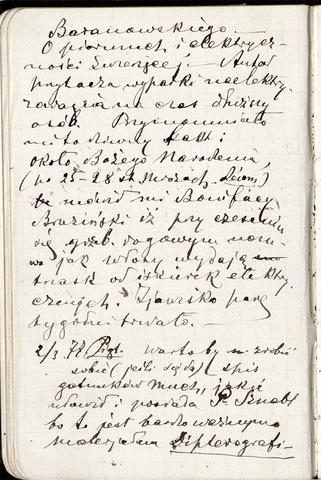 Baranowskiego.
O piorunach i elektrycz-
ności zwierzęcej. Autor
przytacza wypadki naelektry-
zowania na czas dłuższy
osób. Przypomniało
mi to dziwny fakt:
około Bożego Narodzenia,
(po 25-28 st. mrozach,)
mówił mi Bonifacy
Bruziński iż przy czesaniu
się grzeb. rogowym
jak włosy wydają
trzask od iskierek elektry-
cznych. Zjawisko parę
tygodni trwało.—
2/3 Piąt. warto by zrobić
sobie (jeśli się da) spis
gatunków much, jakie
ułowił i posiada P. Sznabl
bo to jest bardzo ważnym
materyałem dipterografi-